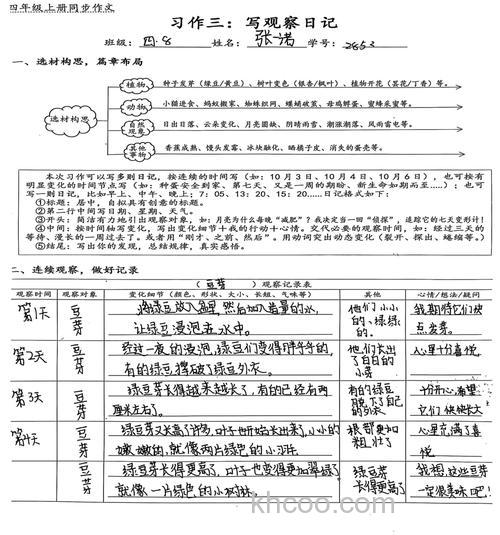 四年级上册同步作文
习作三：写观察日记
班级：四.8 姓名：张诺 学号：2853
一、选材构思，篇章布局
选材构思
植物 种子发芽（绿豆/黄豆）、树叶变色（银杏/枫叶）、植物开花（昙花/丁香）等。
动物 小猫进食、蚂蚁搬家、蜘蛛织网、蝶蛹破茧、母鸡孵蛋、蜜蜂采蜜等。
自然现象 日出日落、云朵变化、月亮圆缺、阴晴雨雪、潮涨潮落、风雨雷电等。
其他事物 香蕉成熟、馒头发霉、冰块融化、晒橘子皮、消失的蛋壳等。
本次习作可以写多则日记，按连续的时间写（如：10月3日、10月4日、10月6日），也可按有
明显变化的时间节点写（如：种蛋安全到家、第七天、又是一周的期盼、新生命如期而至……）；也可
写一则日记，比如早上、中午、晚上；7：05、13：20、15：20……日记格式如下：
①标题：居中，自拟具有创意的标题。
②第二行中间写日期、星期、天气。
③开头：简洁有力地引出观察对象，如：月亮为什么每晚“减肥”？我决定当一回“侦探”，追踪它的七天变形计！
④中间：按时间轴写变化，写出变化细节+我的行动+心情。交代必要的观察时间，如：经过三天的
等待、漫长的一周过去了。或者用“刚才、之前、然后”。用动词突出动态变化（裂开、探出、蜷缩等。）
⑤结尾：写出你的发现，总结规律，真实感悟。
二、连续观察，做好记录
（豆芽）观察记录表
观察时间 观察对象 变化细节（颜色、形状、大小、长短、气味等） 其他 心情/想法/疑问
第1天 豆芽 将绿豆放入盆里，然后加入适量的水，
让绿豆浸泡在水中。
他们小小的、绿绿的。
我期待它们快点发芽。
第2天 豆芽 经过一夜的浸泡，绿豆们变得胖乎乎的，
有的绿豆撑破了绿豆外衣。
他们长出了白白的小芽
心里十分喜悦
第3天 豆芽 绿豆芽长得越来越长了，有的已经有两
厘米左右了。
有的绿豆脱下了自己的外衣
十分开心，希望它们快快长大
第4天 豆芽 绿豆芽又长高了许多，叶子也开始长出来了，小小的
嫩嫩的，就像两片绿色的小羽毛
根部更加粗壮了
心里充满了喜悦
豆芽 绿豆芽长得更高了，叶子也变得更加翠绿了
就像一片绿色的小树林。
绿豆芽长得更高了
我想，这些豆芽一定很美味吧！
khcoo.com